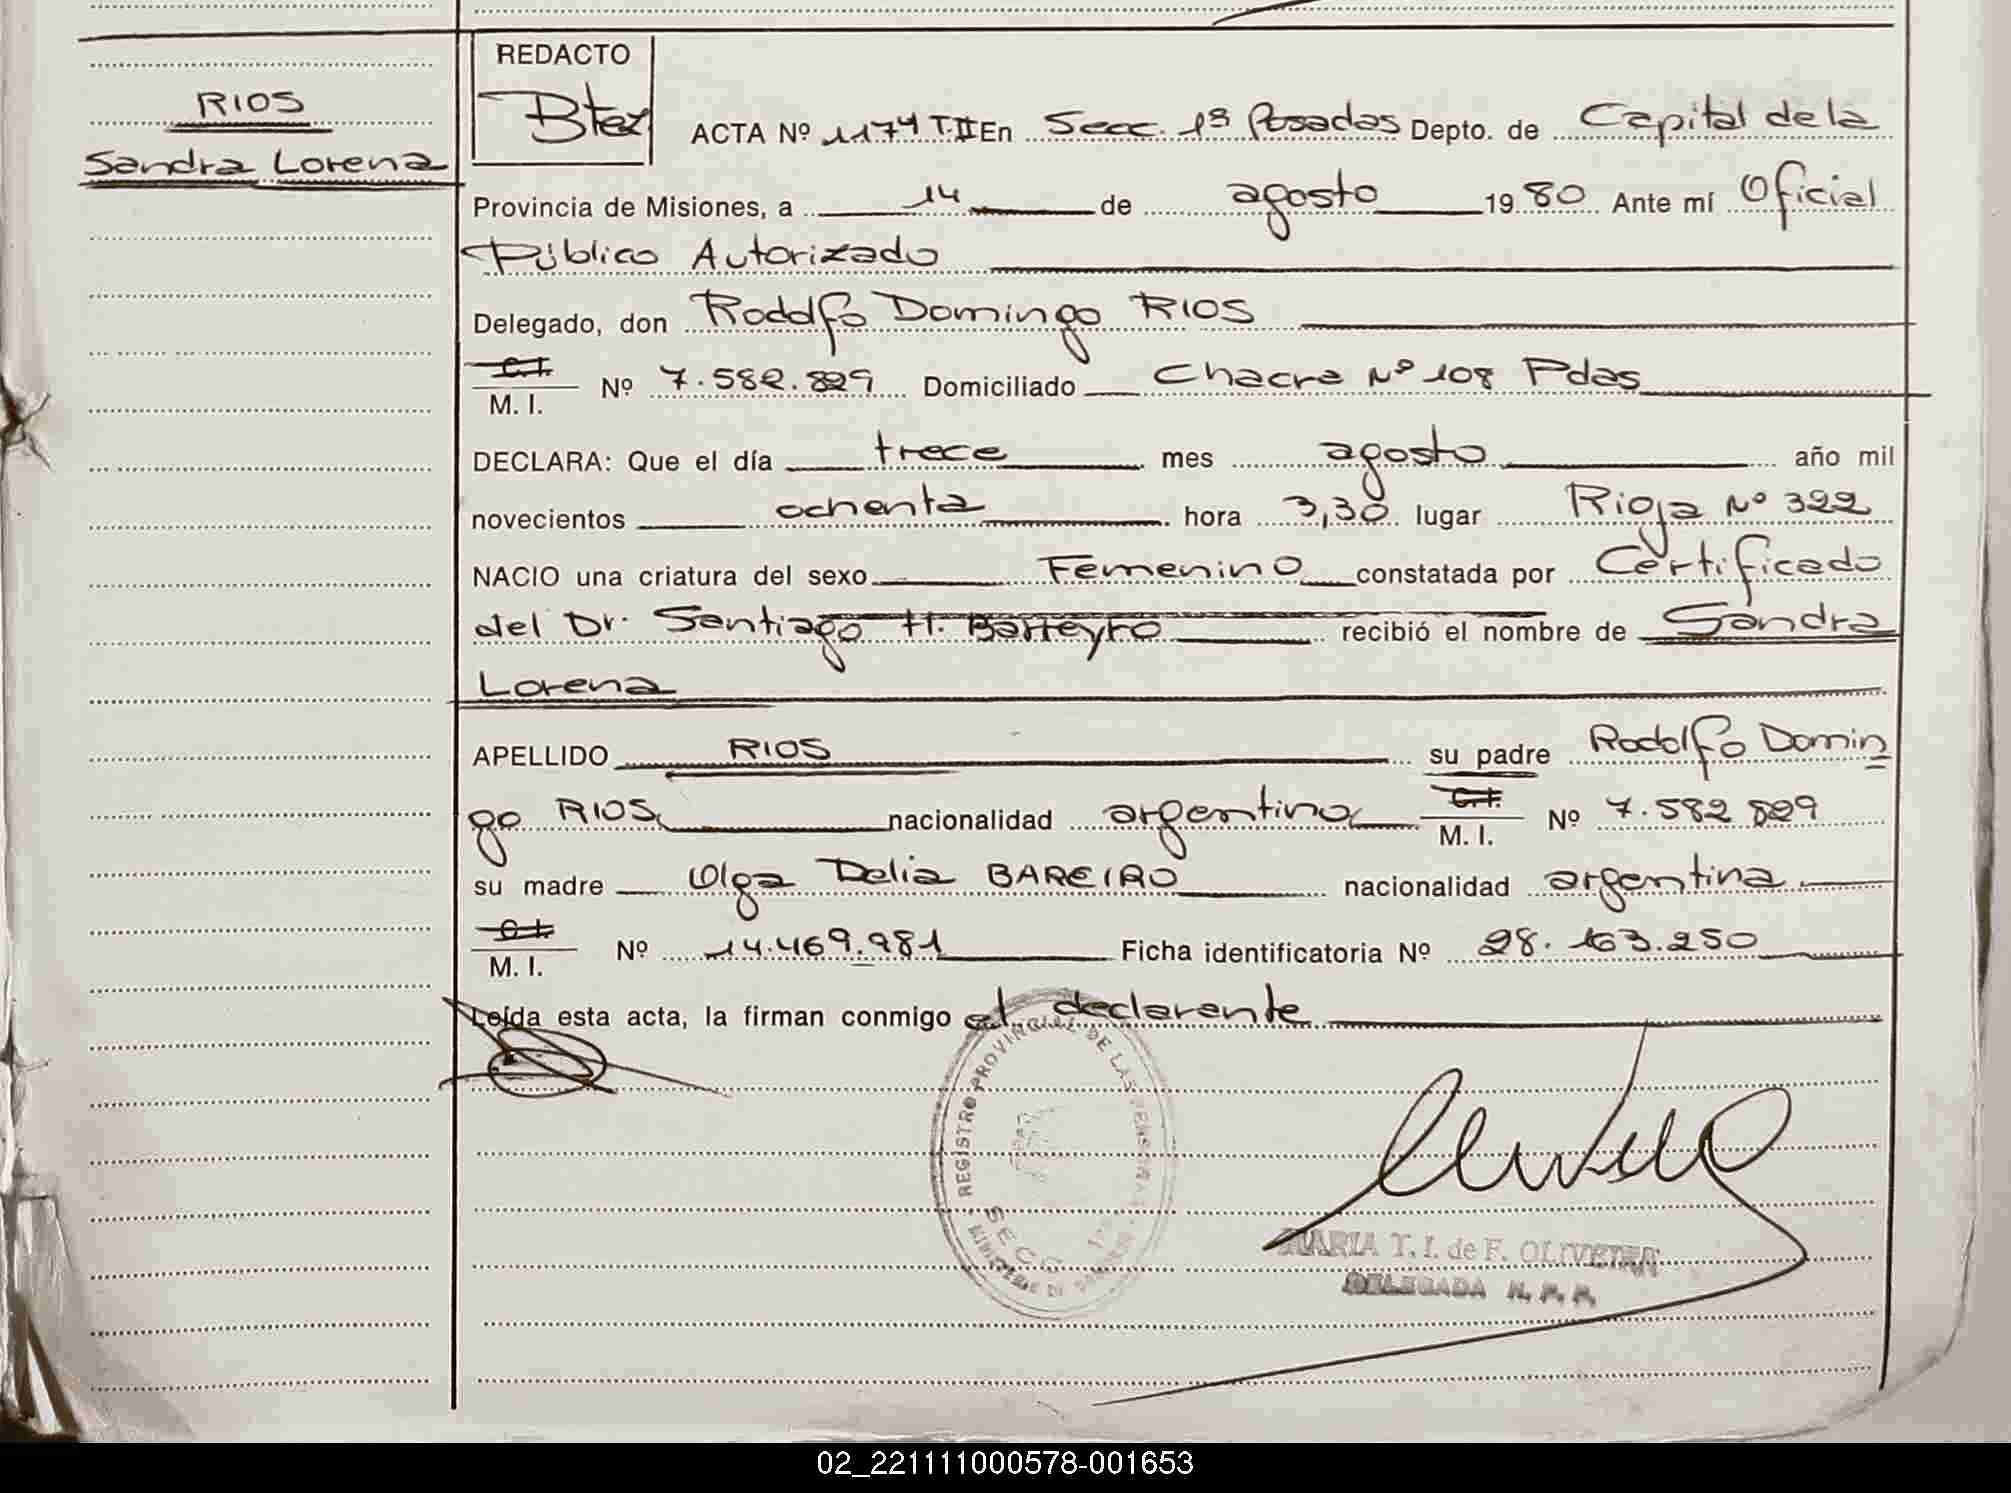 RIOS
Sandra Lorena
REDACTO
Btez
ACTA Nº 1174 T.II En Secc. 1ª Posadas Depto. de Capital de la
Provincia de Misiones, a 14 de agosto 1980 Ante mí Oficial
Público Autorizado
Delegado, don Rodolfo Domingo RIOS
C.I.
M. I. Nº 7.582.829 Domiciliado Chacra Nº 108 Pdas
DECLARA: Que el día trece mes agosto año mil
novecientos ochenta hora 3,30 lugar Rioja Nº 322
NACIO una criatura del sexo Femenino constatada por Certificado
del Dr. Santiago H. Barreyro recibió el nombre de Sandra
Lorena
APELLIDO RIOS su padre Rodolfo Domin
go RIOS nacionalidad argentina C.I.
M. I. Nº 7.582 829
su madre Olga Delia BAREIRO nacionalidad argentina
C.I.
M. I. Nº 14.469.981 Ficha identificatoria Nº 28.163.250
Leída esta acta, la firman conmigo el declarante
REGISTRO PROVINCIAL DE LAS PERSONAS
SECC. 1ª
MARIA T. I. de F. OLIVEIRA
DELEGADA R. P. P.
02_221111000578-001653